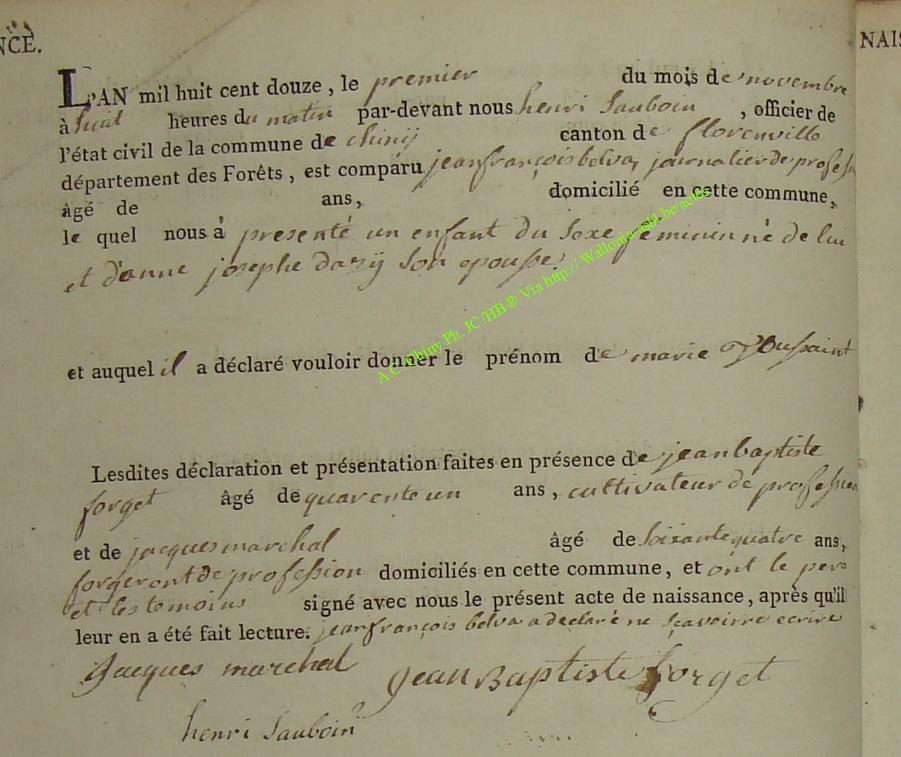 NCE.
NAIS
L'AN mil huit cent douze, le premier du mois de novembre
à huit heures du matin par-devant nous henri Sauboin, officier de
l'état civil de la commune de chinij canton de florenville
département des Forêts, est comparu jean françois belva, journalier de profession
âgé de ans, domicilié en cette commune,
le quel nous à presenté un enfant du sexe féminin né de lui
et d'anne josephe dazij son epousse.
et auquel il a déclaré vouloir donner le prénom de marie Toussaint
Lesdites déclaration et présentation faites en présence de jean baptiste
forget âgé de quarente un ans, cultivateur de profession
et de jacques marchal âgé de soixante quatre ans,
forgeront de profession domiciliés en cette commune, et ont le pere
et les temoins signé avec nous le présent acte de naissance, après qu'il
leur en a été fait lecture. jean françois belva a declaré ne sçavoirre ecrire
Jacques marchal Jean Baptiste forget
henri Sauboin
A.C. Chiny Ph. JC/HB® Via http:// Wallonia-asbl.be/actes